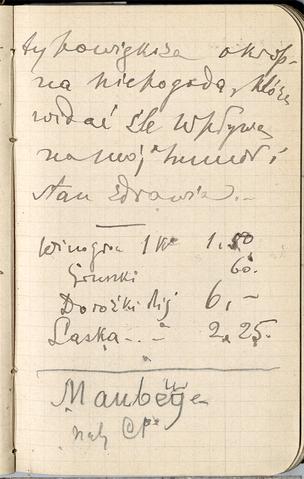 okrop-
na niepogoda, która
widać źle wpływa
na mój humor i
stan zdrowia.-
Winogron 1 K° 1.50
Gruszki 60.
Dorożki 6,-
Laska.. - 2.25.
Maubeuge